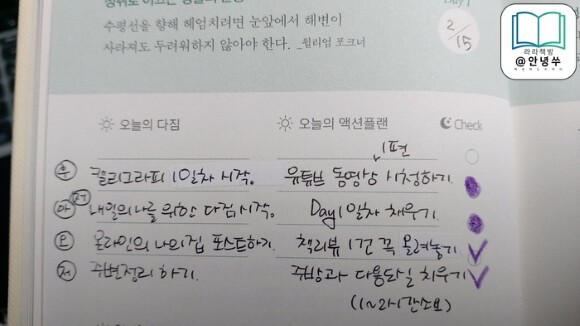 수평선을 향해 헤엄치려면 눈앞에서 해변이
사라져도 두려워하지 않아야 한다. _윌리엄 포크너
2/15
라라책방
@안녕쑤
오늘의 다짐 오늘의 액션플랜 Check
1편
캘리그라피 1일차 시작. 유튜브 동영상 시청하기.
내일의 나를 위한 다짐 시작. Day1일차 채우기.
온라인의 나의집 포스트하기. 책리뷰 1건 꼭 올려놓기
주변정리 하기. 주방과 다용도실 치우기
(1~2시간소요)